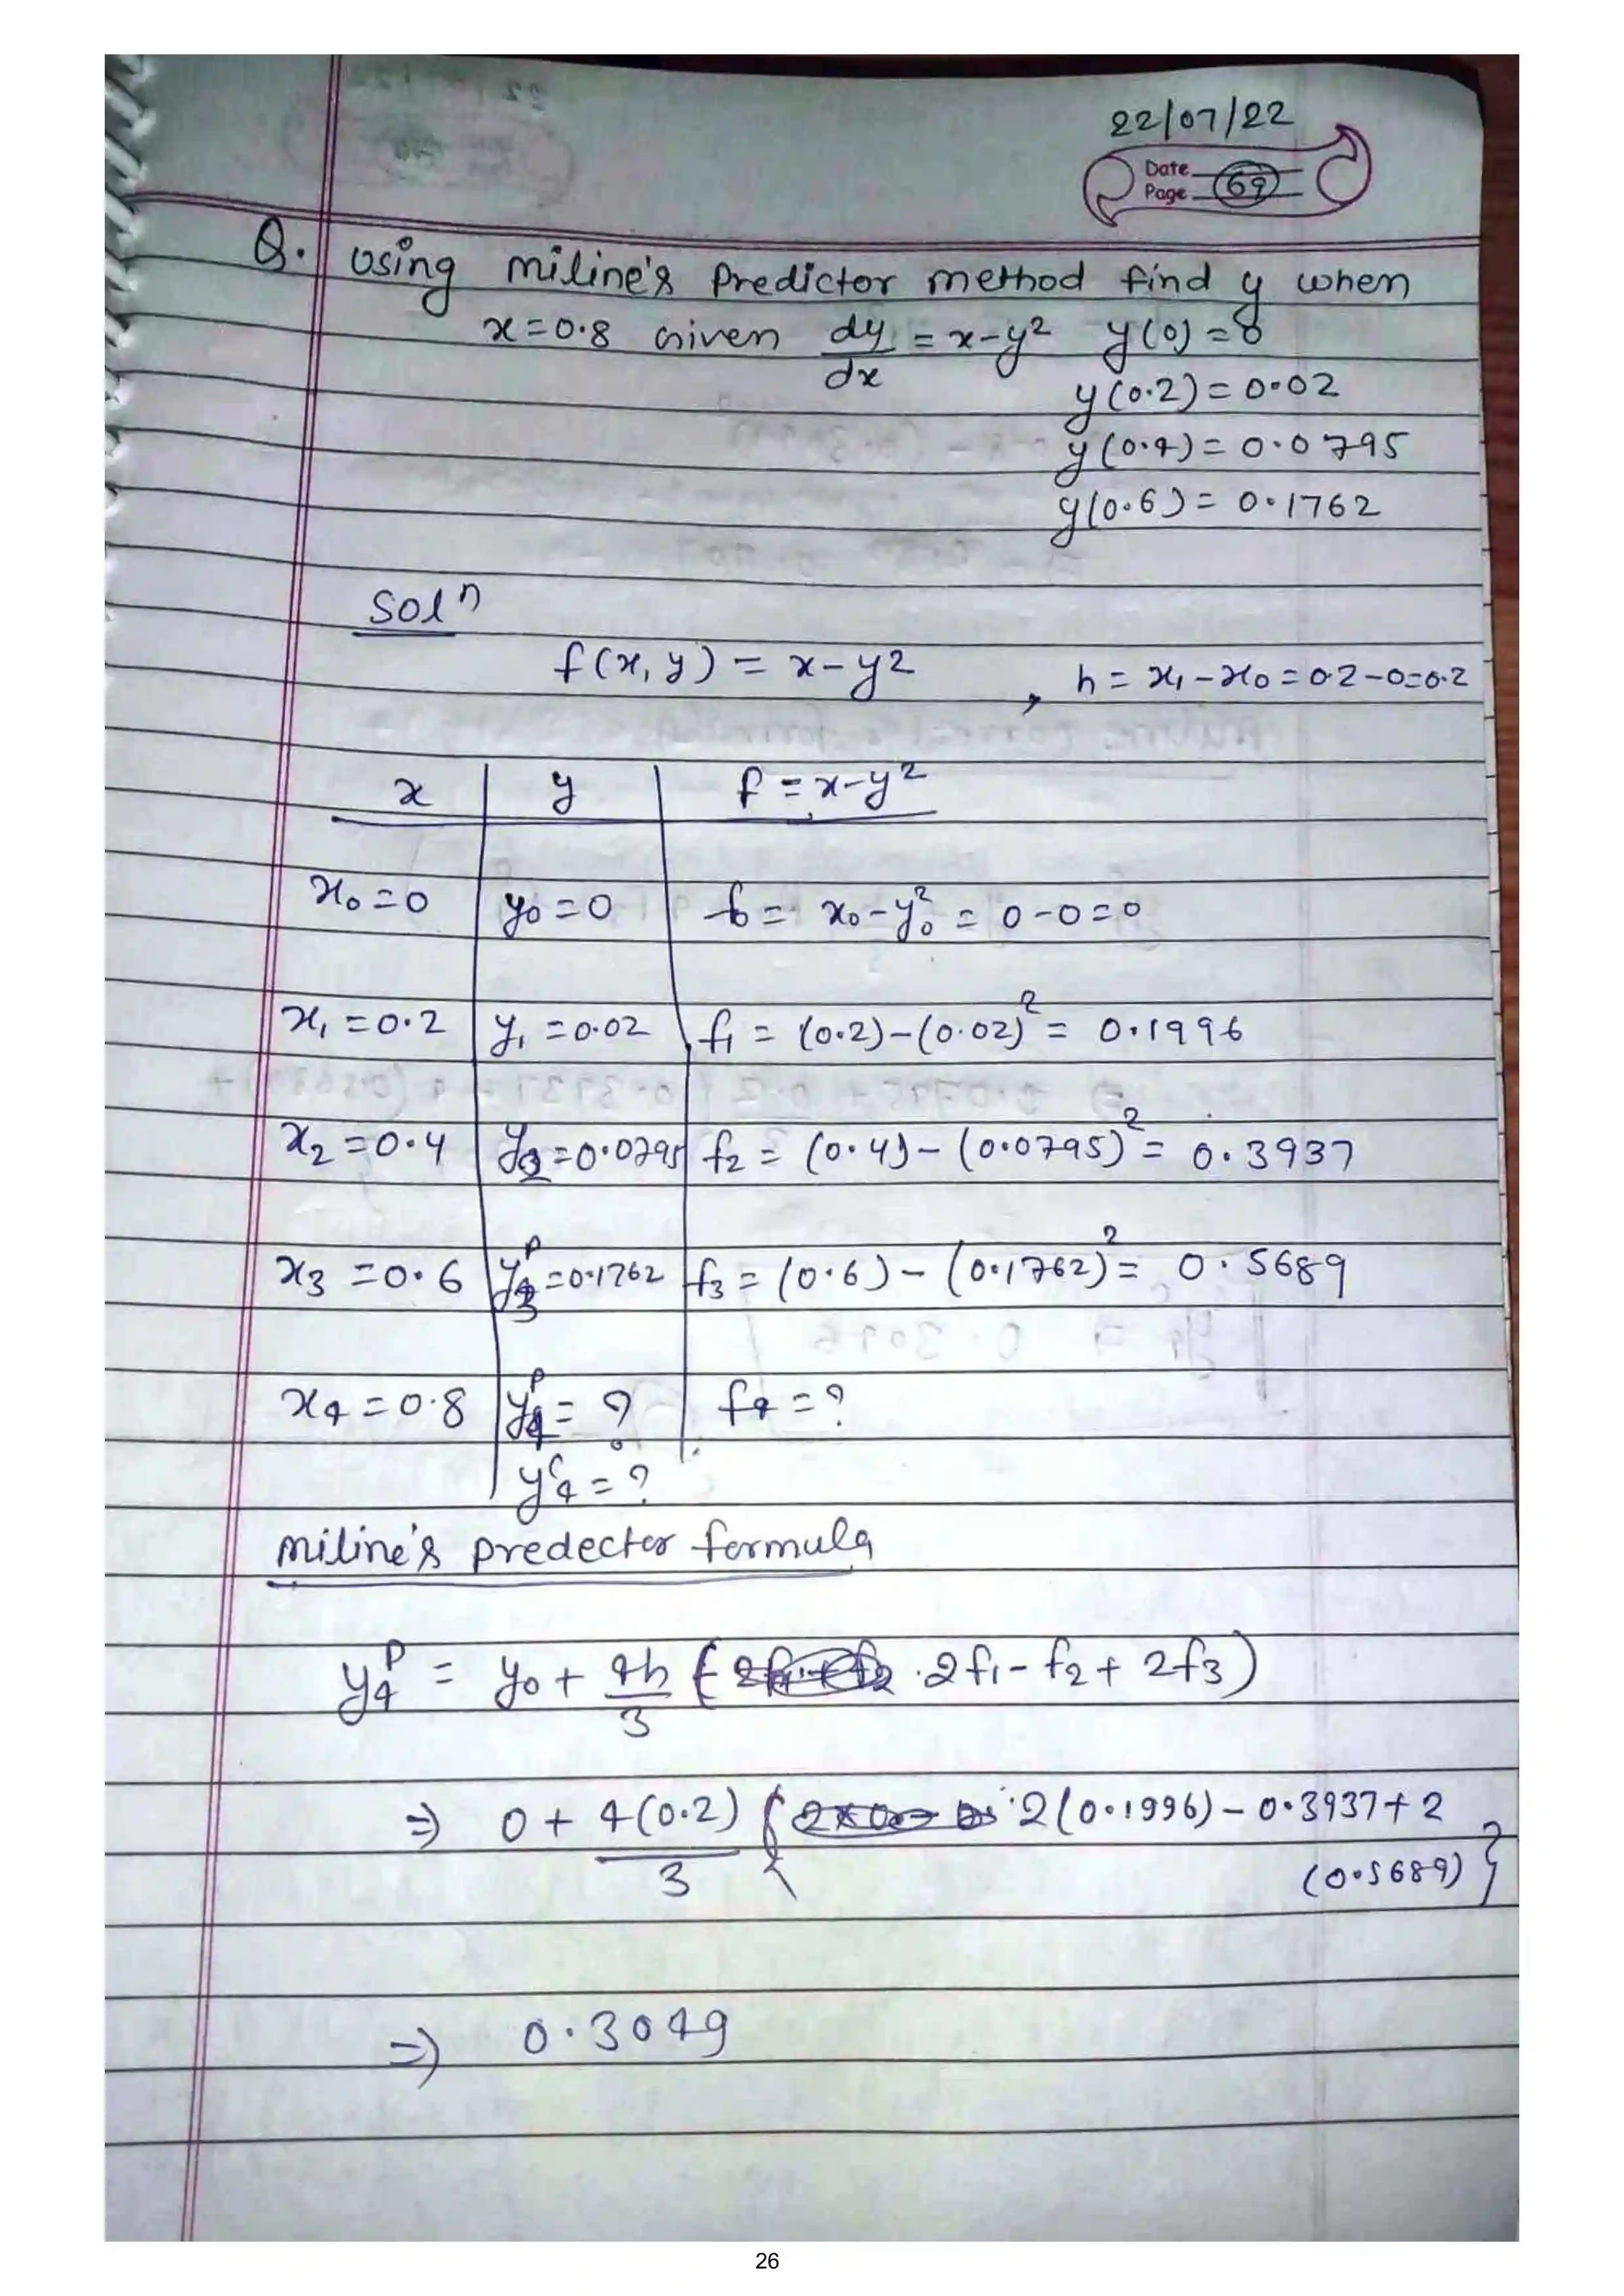 22/07/22
Date
Page 69
Q. Using miline's Predictor method find y when
x=0.8 Given dy/dx = x-y² y(0)=0
y(0.2)=0.02
y(0.4)=0.0795
y(0.6)=0.1762
Solⁿ
f(x,y) = x-y² , h = x₁-x₀=0.2-0=0.2
x y f=x-y²
x₀=0 y₀=0 f₀= x₀-y₀² = 0-0=0
x₁=0.2 y₁=0.02 f₁ = (0.2)-(0.02)² = 0.1996
x₂=0.4 y₂=0.0795 f₂ = (0.4)-(0.0795)² = 0.3937
x₃=0.6 y₃ᵖ=0.1762 f₃=(0.6)-(0.1762)² = 0.5689
x₄=0.8 y₄ᵖ=? f₄=?
y₄ᶜ=?
miline's predector formula
y₄ᵖ = y₀+ 4h/3 { 2f₁-f₂+2f₃)
⇒ 0+ 4(0.2)/3 { 2(0.1996)-0.3937+2
(0.5689)}
⇒ 0.3049
26